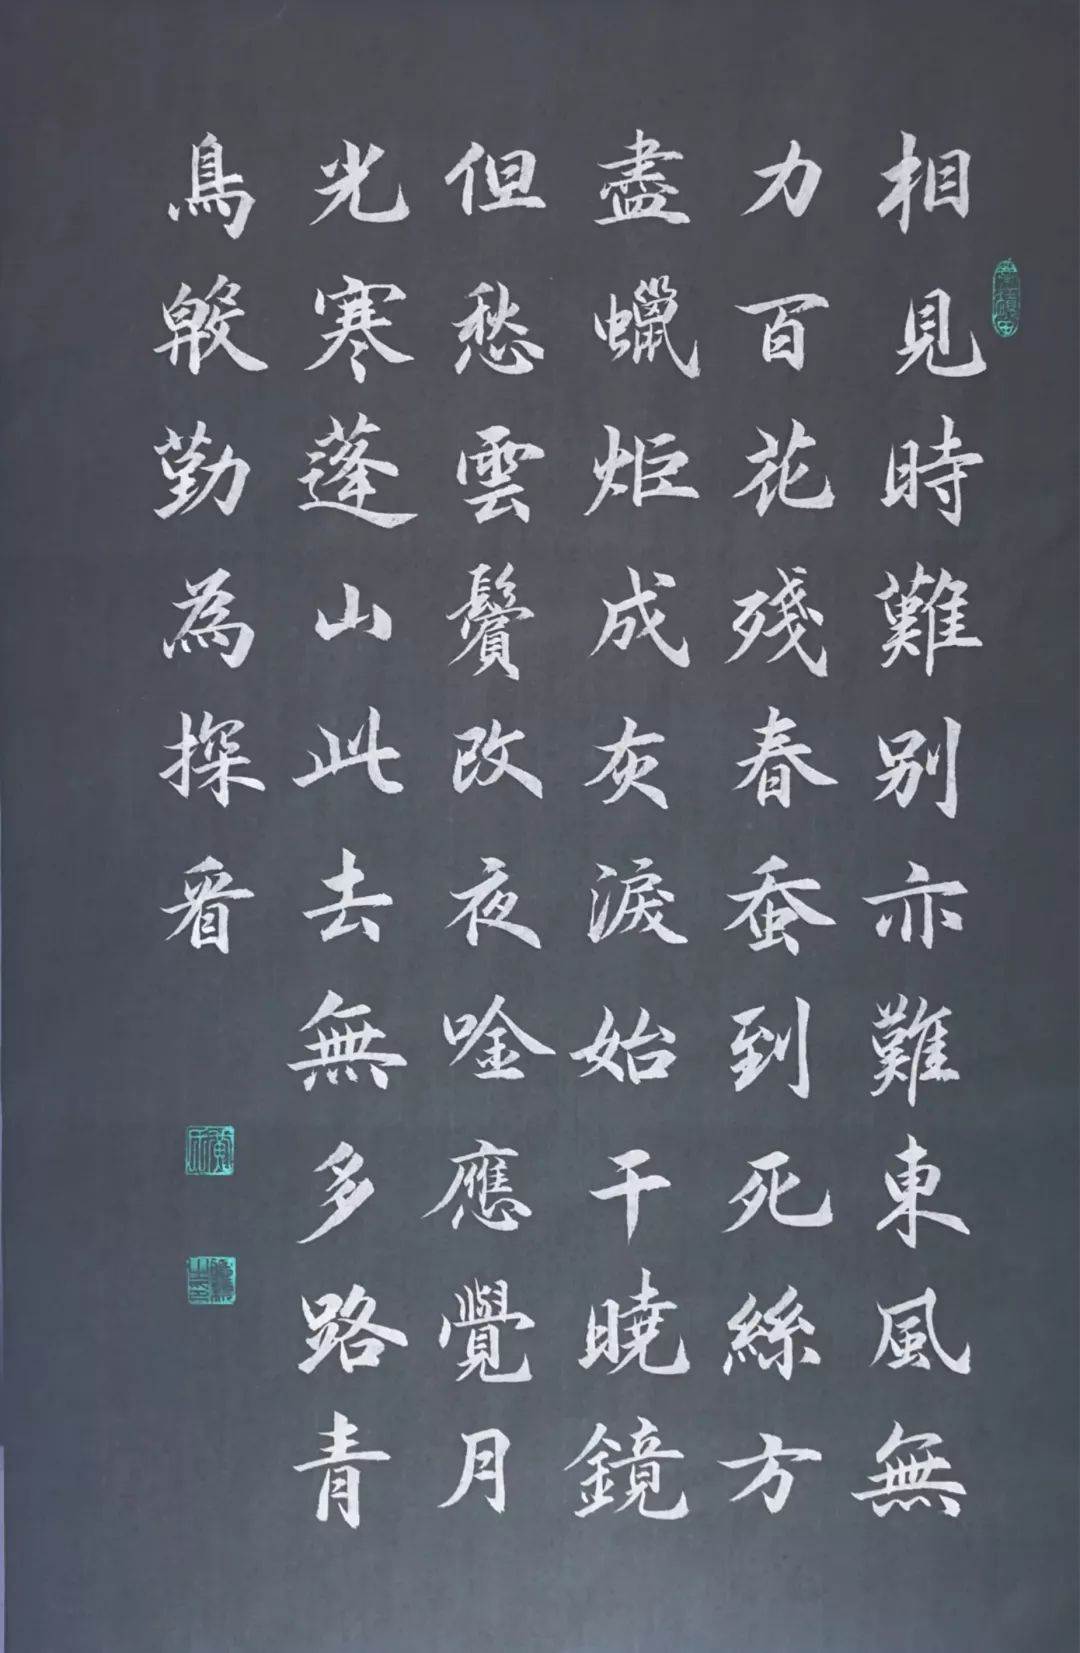 相見時難別亦難東風無
力百花殘春蚕到死絲方
盡蠟炬成灰淚始干曉鏡
但愁雲鬢改夜唫應覺月
光寒蓬山此去無多路青
鳥慇勤為探看